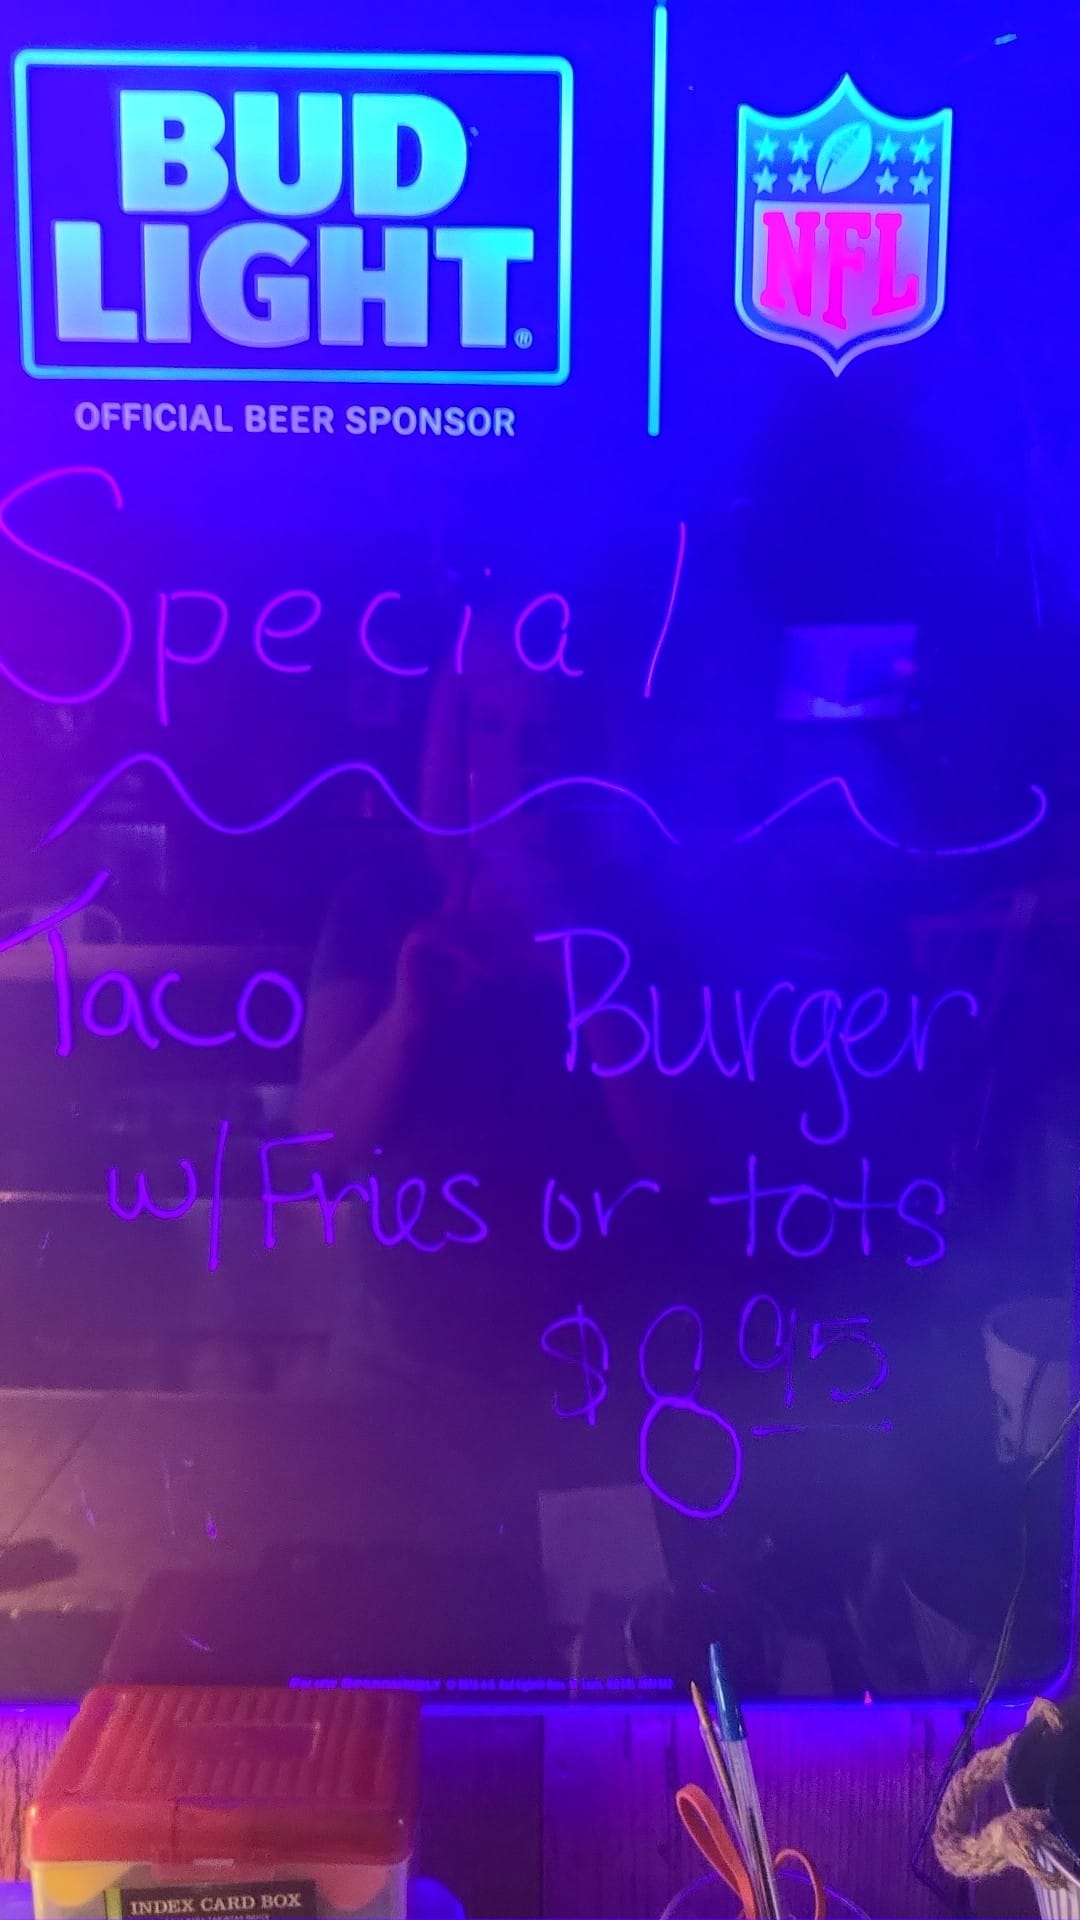 BUD
LIGHT®
OFFICIAL BEER SPONSOR
NFL
Special
Taco Burger
w/Fries or tots
$8.95
INDEX CARD BOX